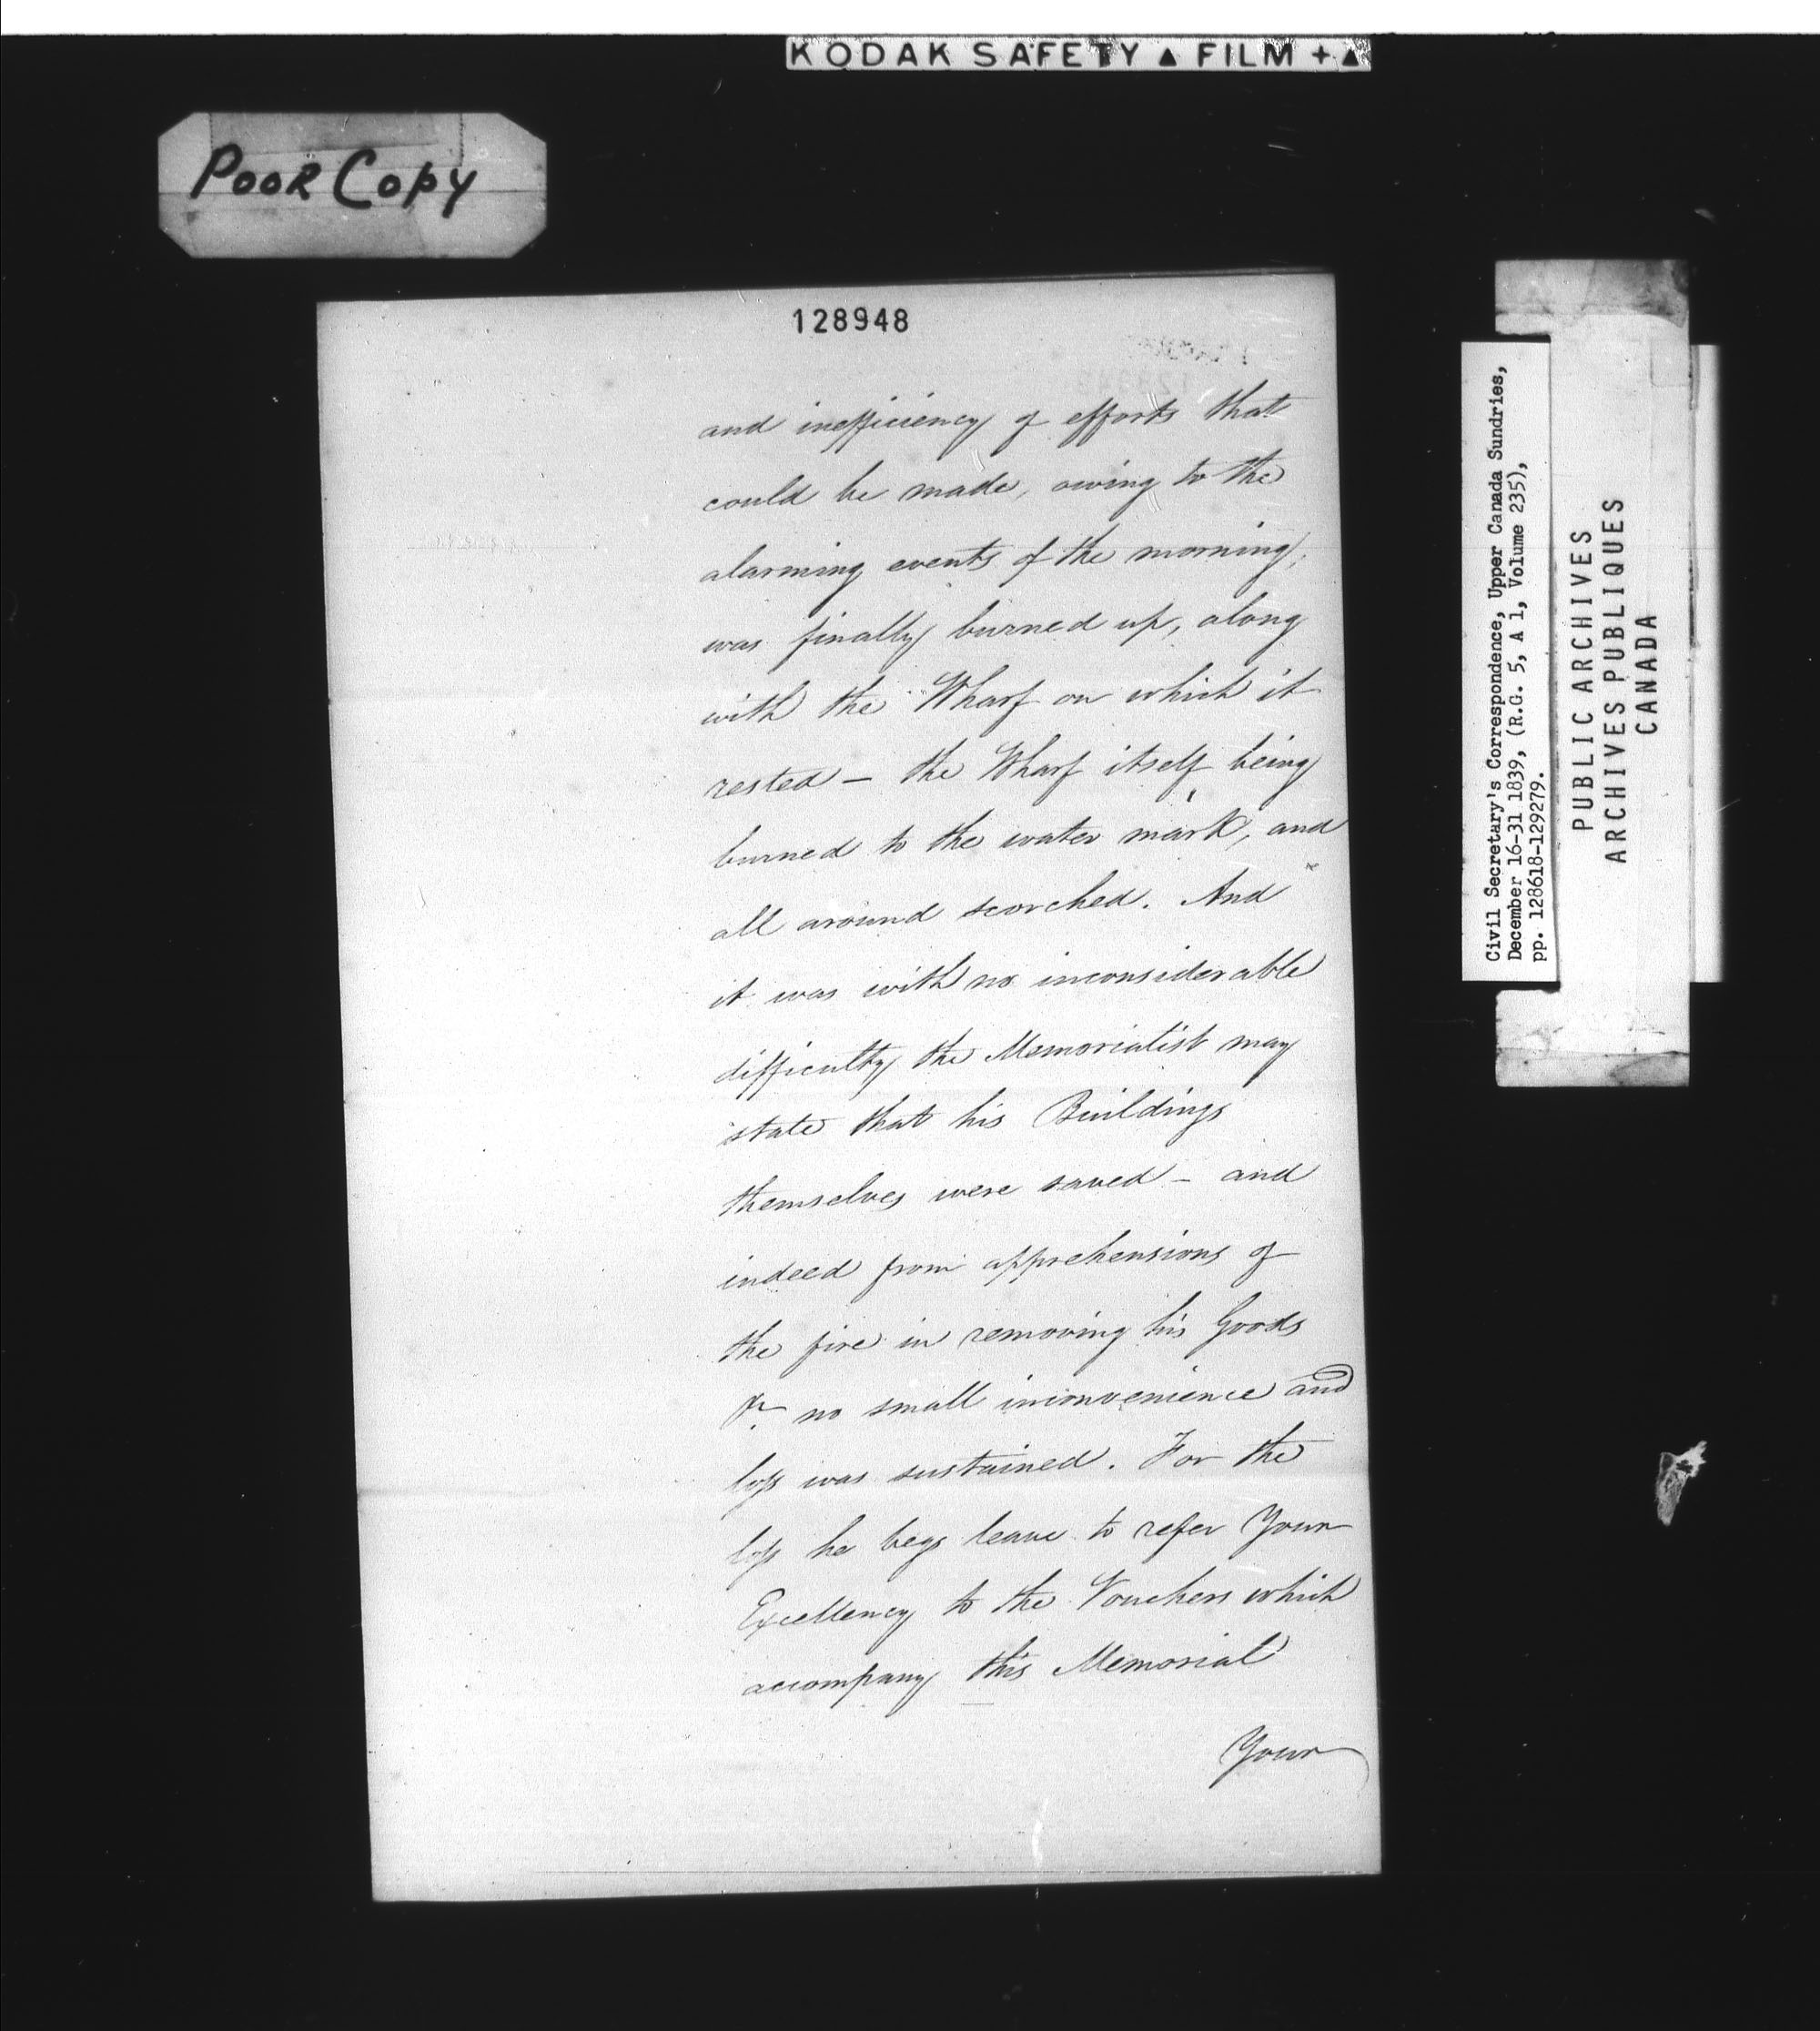 KODAK SAFETY ▲ FILM + ▲
POOR COPY
128948
and inefficiency of efforts that
could be made, owing to the
alarming events of the morning;
was finally burned up, along
with the Wharf on which it
rested — the Wharf itself being
burned to the water mark, and
all around scorched. And
it was with no inconsiderable
difficulty the Memorialist may
state that his Buildings
themselves were saved — and
indeed from apprehensions of
the fire in removing his Goods
&c. no small inconvenience and
loss was sustained. For the
loss he begs leave to refer Your
Excellency to the Vouchers which
accompany this Memorial
Your
Civil Secretary's Correspondence, Upper Canada Sundries,
December 16-31 1839, (R.G. 5, A 1, Volume 235),
pp. 128618-129279.
PUBLIC ARCHIVES
ARCHIVES PUBLIQUES
CANADA